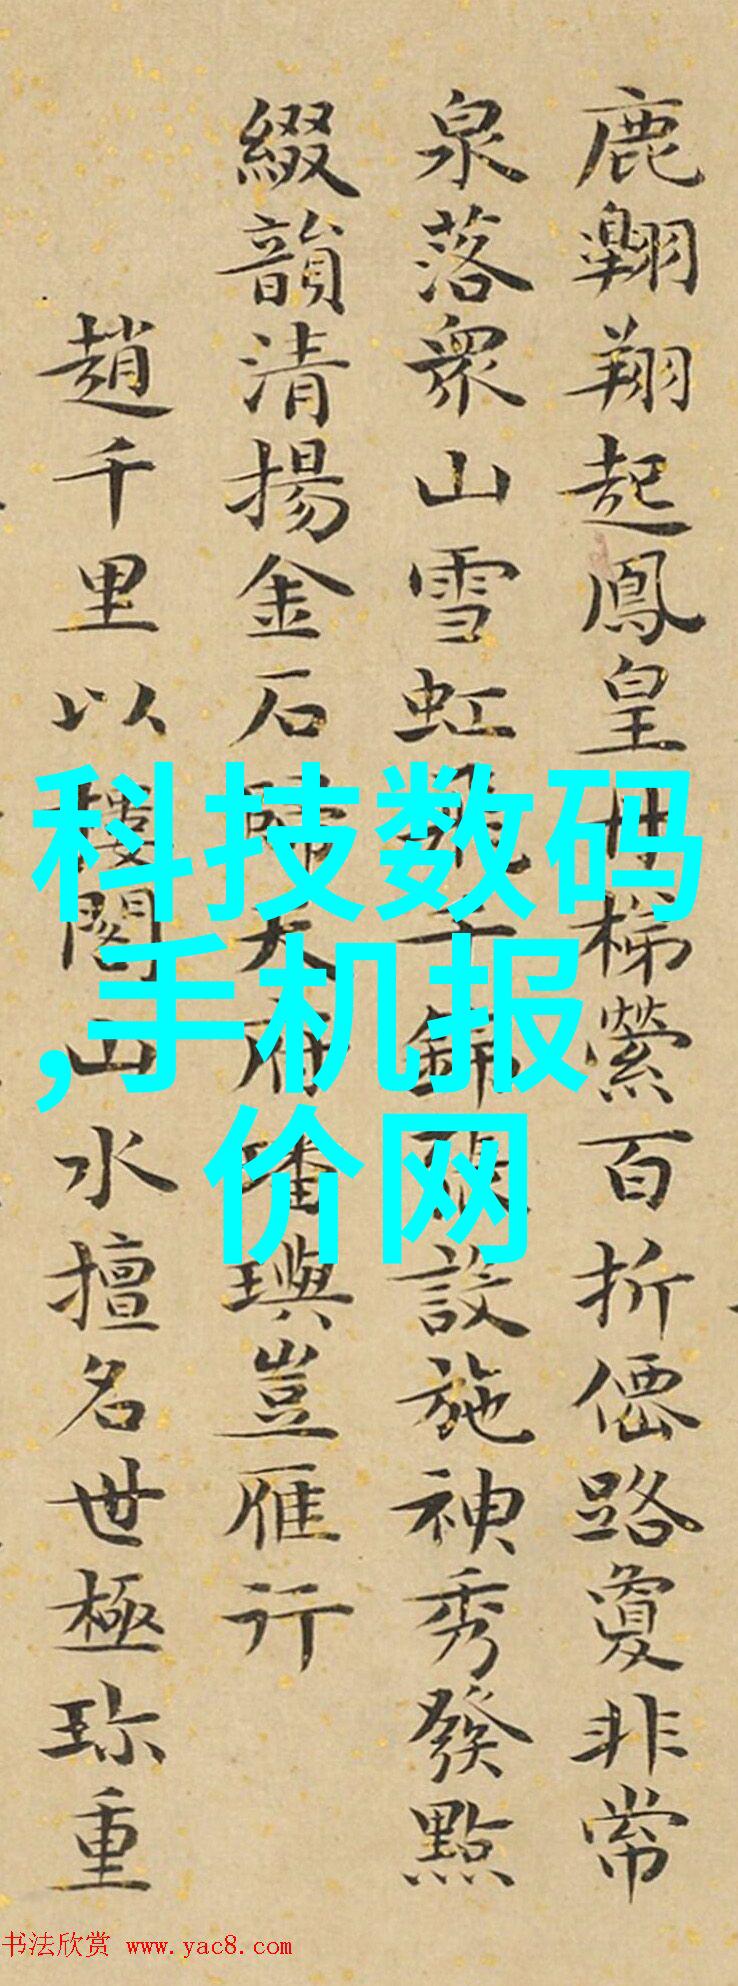 鹿翱翔起鳳皇丹梯縈百折僊路敻非常
泉落衆山雪虹千錦張設施神秀發點
綴韻清揚金石歸天府璠璵豈雁行
趙千里以樓閣山水擅名世極珎重
科技数码
,手机报
价网
书法欣赏 www.yac8.com